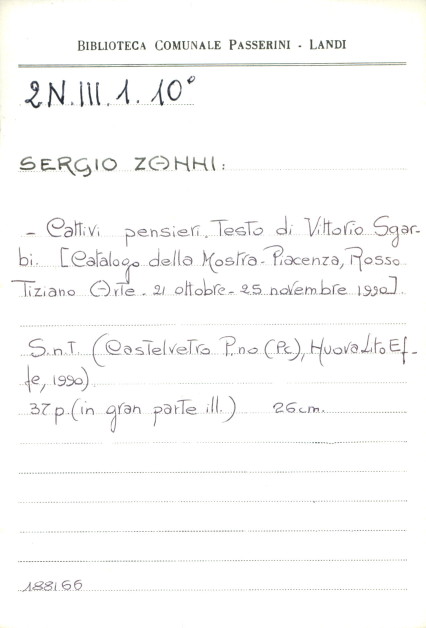 BIBLIOTECA COMUNALE PASSERINI - LANDI
2N.III.1.10°
SERGIO ZANNI:
- Cattivi pensieri. Testo di Vittorio Sgar-
bi. [Catalogo della Mostra - Piacenza, Rosso
Tiziano Arte - 21 ottobre - 25 novembre 1990].
S.n.t. (Castelvetro P.no (Pc), Nuova Lito Ef-
fe, 1990)
37 p. (in gran parte ill.) 26 cm.
188166